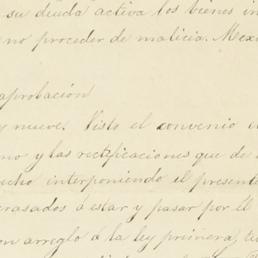 su deuda activa los bienes in
no proceder de malicia. Mexi
aprobacion
y nueve. Visto el convenio c
mo y las rectificaciones que de
echo interponiendo el presente
erasados á estar y pasar por él
on arreglo á la ley primera, ti